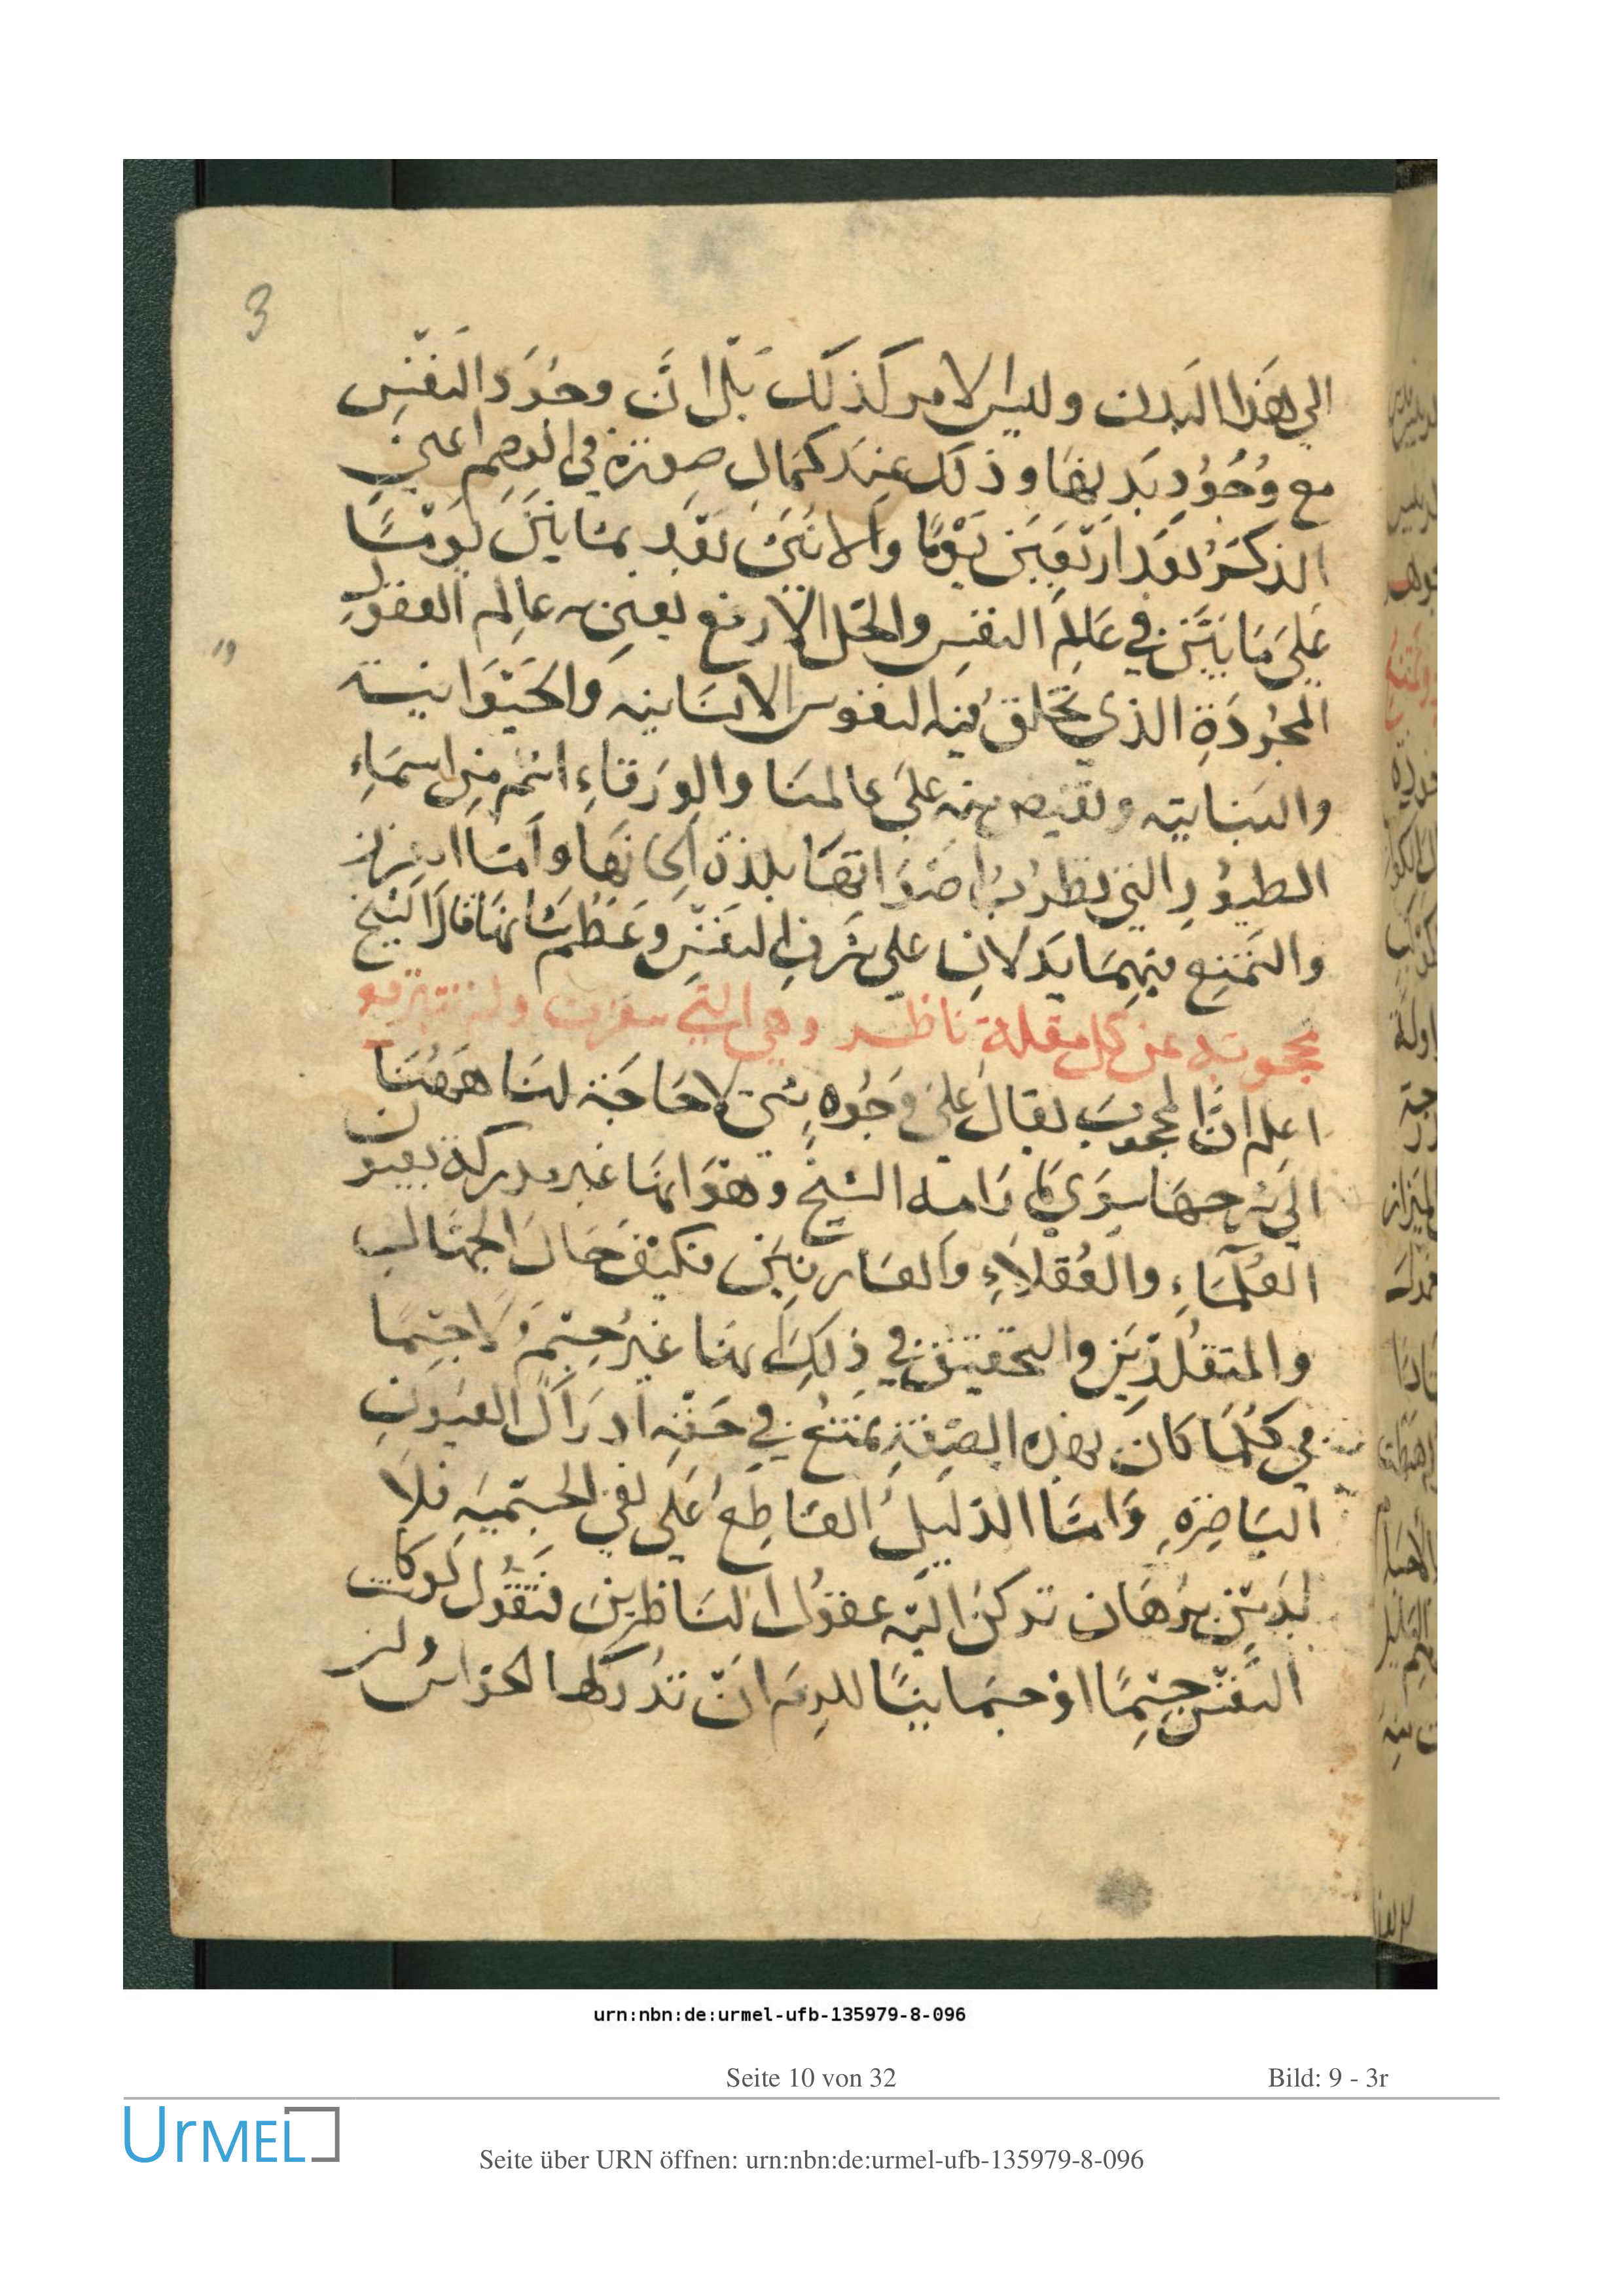 3
الي هَذا البَدن وليس الامر كذلك بَل انَّ وجُود النفْسِ
مع وُجُوْدِ بَدنهَا وذلك عِندَ كمَالِ صورَتهِ في الرحِم اعني
الذكَرُ بَعْدَ ارْبَعِينَ يَوْمًا وَالانثىَ بَعْد ثمَانينَ يَومًا
عَليَ مَا بَيَّن في عَالَمِ النفسِ والمحَل الارفع يعني به عالم العقولِ
المجرُدَةِ الذي تخلق منه النفوس الانسَانيه وَالحَيَوَانيَة
والنباتيه وتفيض منه عَليَ عالمنَا والوَرقاءِ اسْم مِن اسمَاءِ
الطيُورِ التي تطرُبُ اصْوَاتهَا بلذة الحانهَا وامَّا التعزز
والتمَنِع فيهمَا يَدلانِ علي شرفِ النفْسِ وَعَظم شَانهَا قالَ الشيخ
محجوبَه عن كل مقلة ناظر وهي التي سفرت ولم تتبرقع
اعلم انَّ المحجوبَ يقالُ عَليَ وجُوهٍ شتى لاحَاجَة لنَا ههُنَا
الي شرحهَا سِوَي مَا رَامه الشيخ وهوَ انهَا غير مدركة بعيون
العُلمَاءِ والعُقلاءِ وَالعَارفِين فكيفَ حَالَ الجهَّالِ
والمتقلدِّين والتحقيق في ذلِكَ انهَا غَيرُ جِسْم وَلا جسْمَا
ني كُلمَا كانَ بهذه الصِفَةِ يمتنعُ في حَقِه ادرَاك العيُونِ
البَاصِرَه وَامَّا الدَليلُ القَاطِعُ عَلي نفي الجسْميَه فلا
بدَ من بُرهَان تركنُ اليْه عقوُل الناظرينَ فنَقُول لو كانت
النفْس جِسْمًا اوْ جسمَانيًا للزمَ انْ تدُركهَا الحَوَاسُ ولم
urn:nbn:de:urmel-ufb-135979-8-096
Seite 10 von 32
Bild: 9 - 3r
UrMEL
Seite über URN öffnen: urn:nbn:de:urmel-ufb-135979-8-096